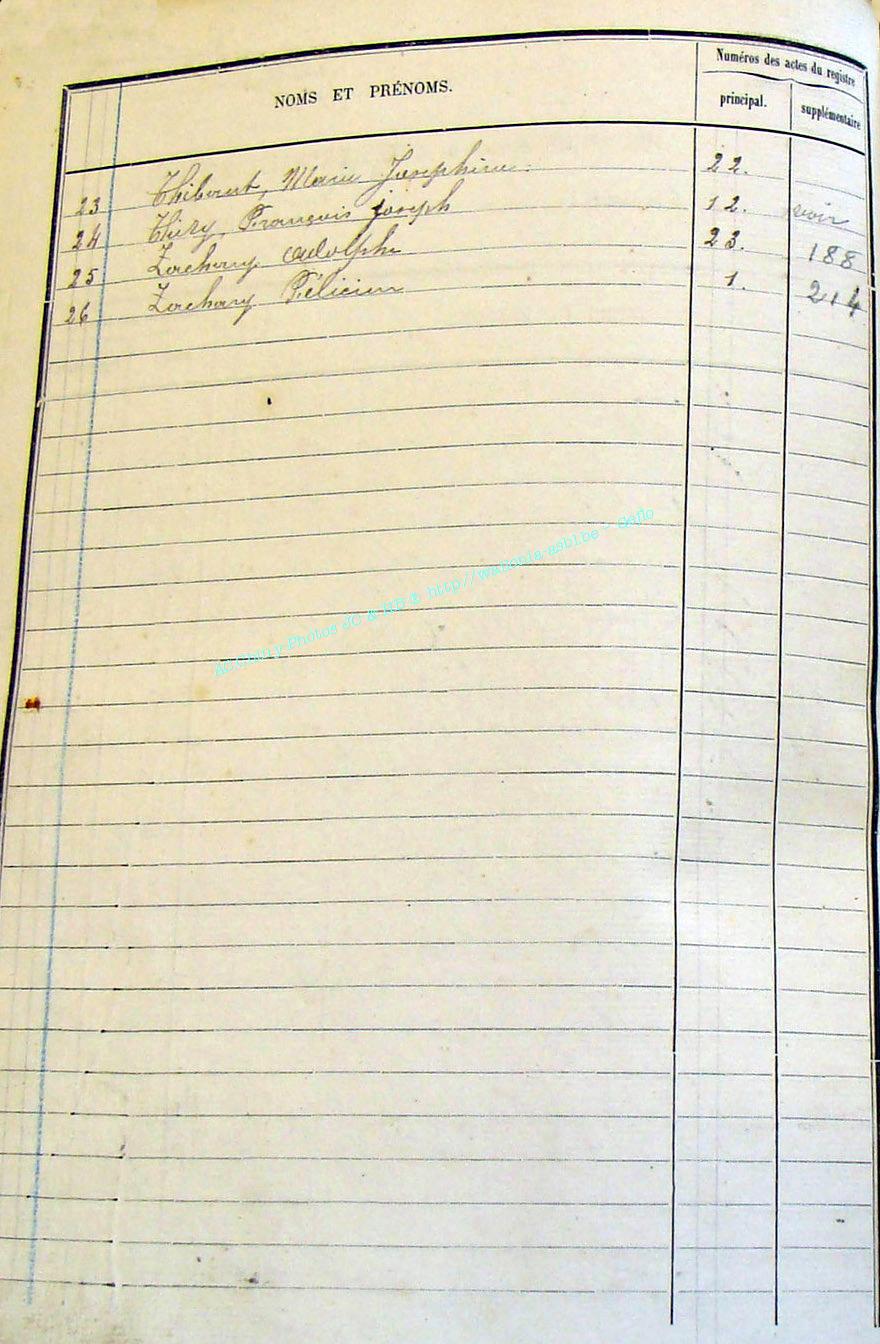 NOMS ET PRÉNOMS.
Numéros des actes du registre
principal.
supplémentaire
23 Thibaut, Marie Josephine. 22.
24 Thiry, François joseph 12. voir
25 Zachary Adolphe 23. 188
26 Zachary Félicien 1. 214
AC Chiny-Photos JC & HB © http//wallonia-asbl.be - Géflo